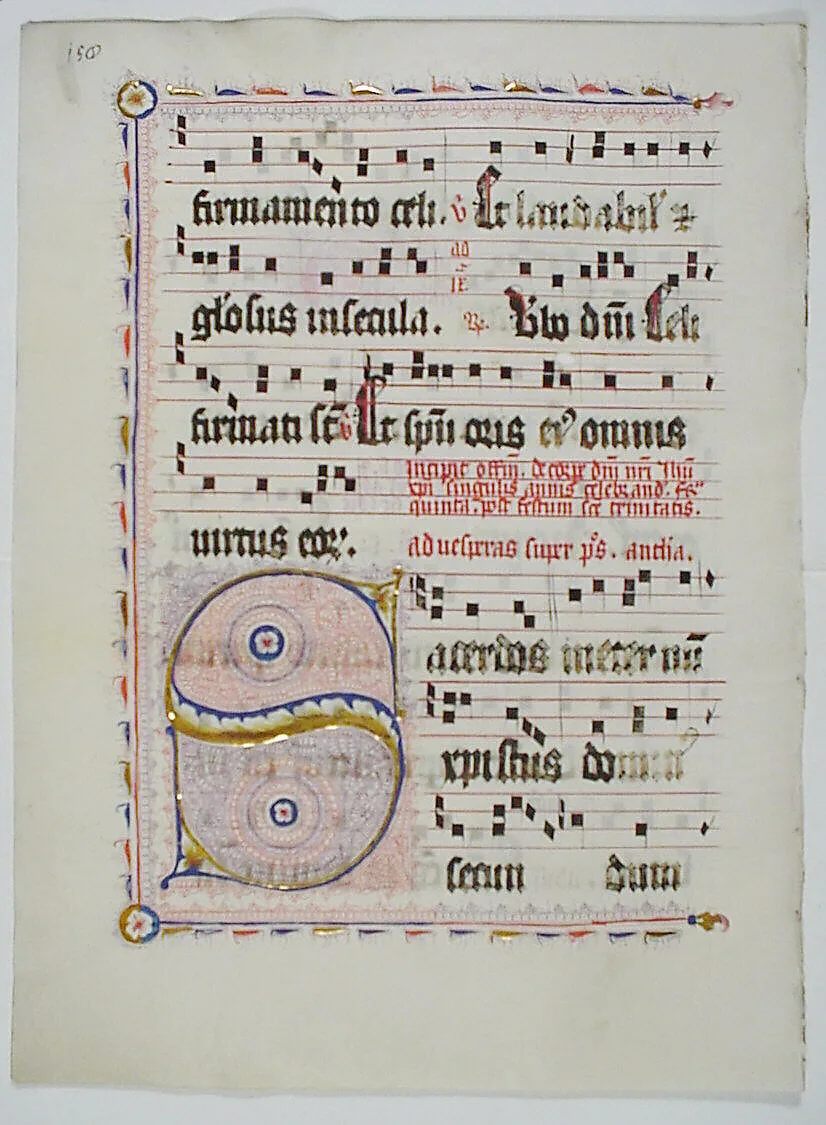 150
firmamento celi. v Et laudabil' &
ad
glosus in secula. R. Vbo dm̄ Celi
firmati st̄ v Et spū oris eꝰ omnis
Incipit offm̄. de corpe dm̄ nr̄i Ihū
xpi singulis annis celebrand. fer
quinta. post festum sce trinitatis.
uirtus eoꝝ. ad uesperas super ps. antha.
Sacerdos in eter nū
xpistus domin
secun dum